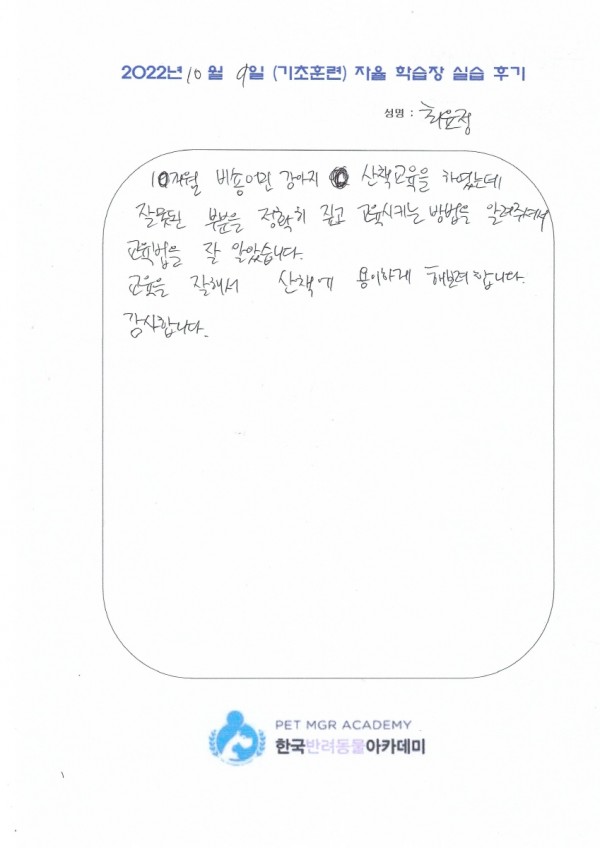 2022년 10월 9일 (기초훈련) 자율 학습장 실습 후기
성명 : 최윤정
10개월 비숑어린 강아지 산책교육을 하였는데
잘못된 부분을 정확히 짚고 교육시키는 방법을 알려주셔서
교육법을 잘 알았습니다.
교육을 잘해서 산책에 용이하게 해보려합니다.
감사합니다.
PET MGR ACADEMY
한국반려동물아카데미